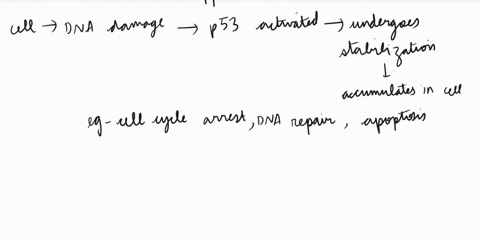 cell → DNA damage → p53 activated → undergoes
stabilization
↓
accumulates in cell
eg - cell cycle arrest, DNA repair, apoptosis